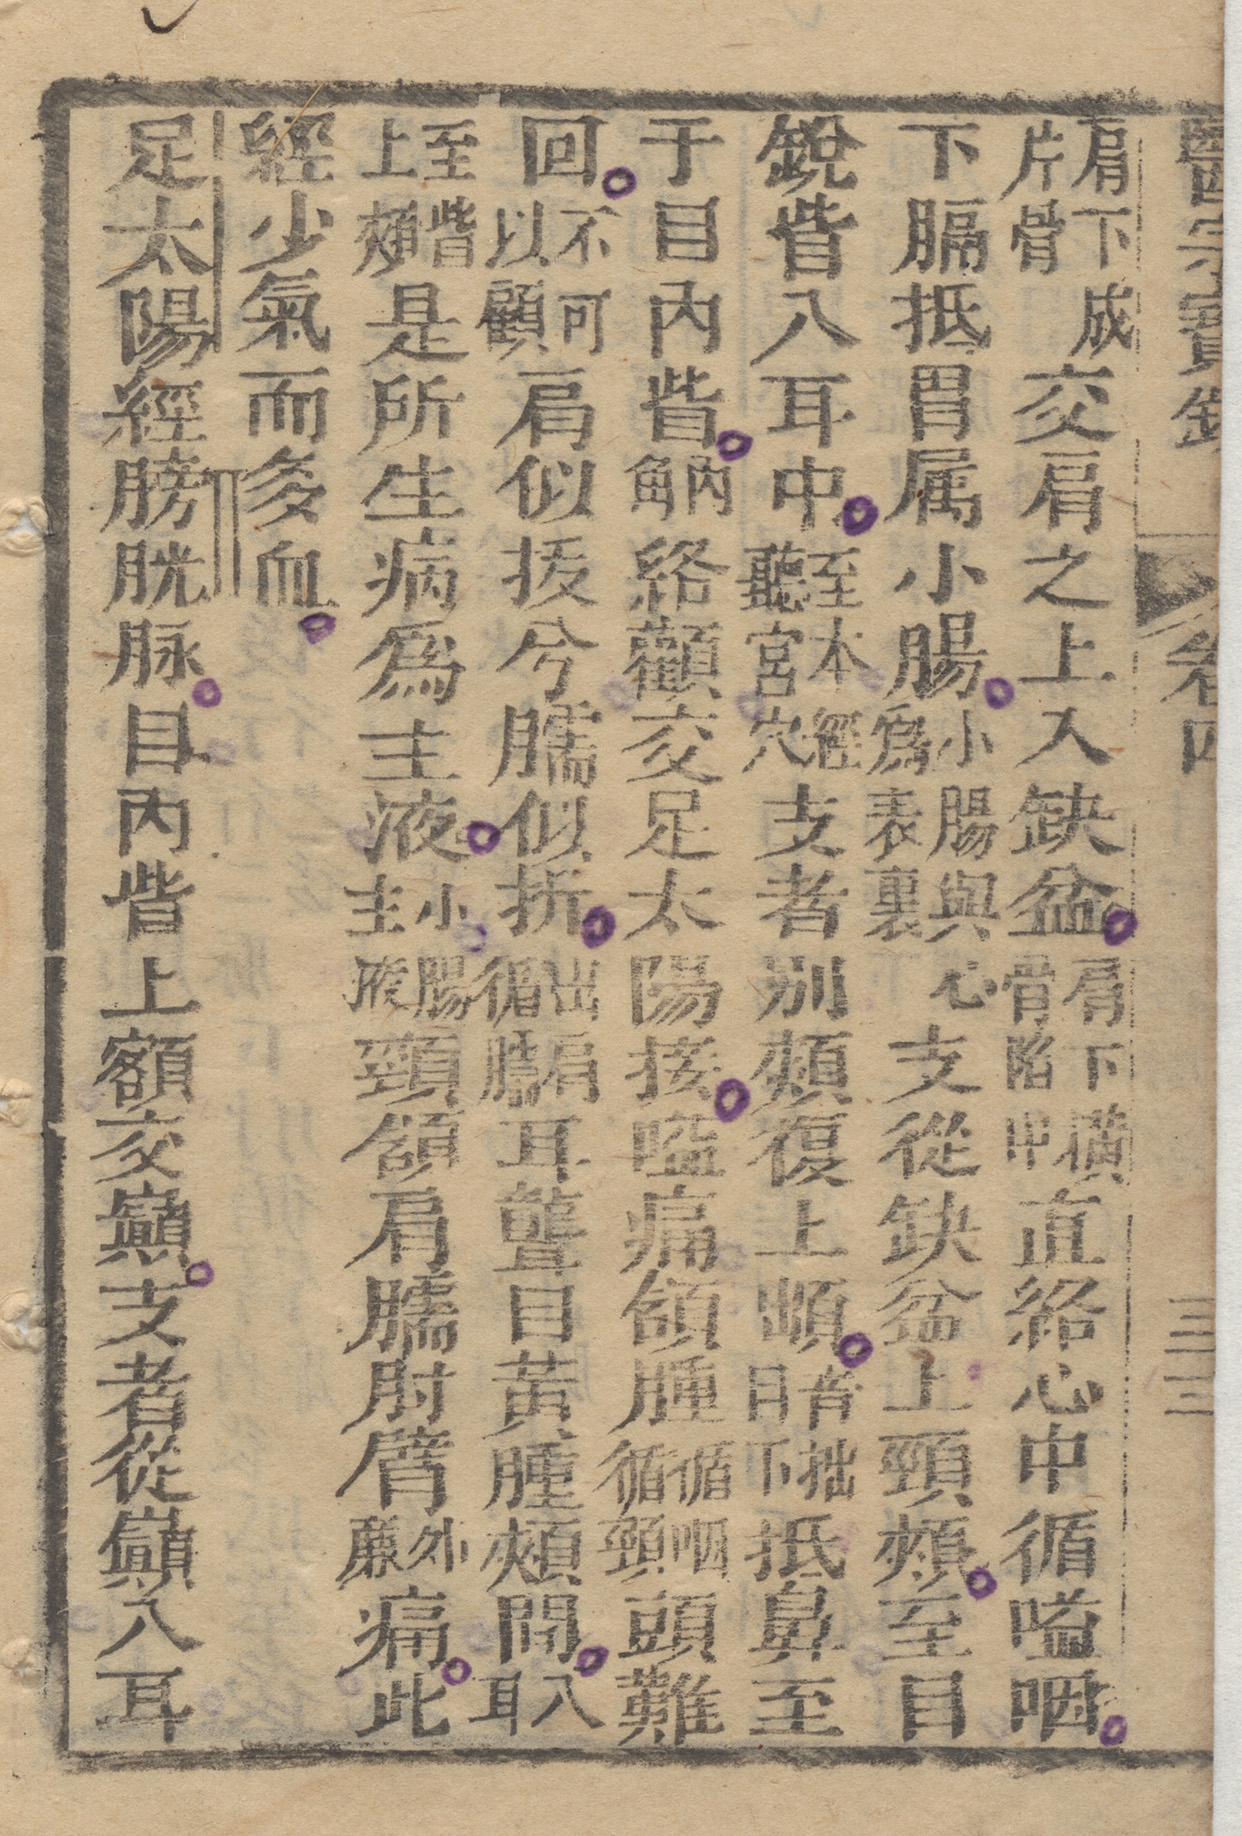 醫宗寶鏡 卷四 三三
肩下成片骨交肩之上入缺盆肩下橫骨陷中直絡心中循嗌咽
下膈抵胃属小腸小腸與心爲表裏支從缺盆上頸頰至目
銳眥入耳中至本經聽宮穴支者別頰復上䪼音拙目下抵鼻至
于目內眥內角絡顴交足太陽接嗌痛頷腫循咽循頸頭難
回不可以顧肩似拔兮臑似折出肩循臑耳聾目黃腫頰間入耳
至眥上頰是所生病爲主液小腸主液頸頷肩臑肘臂外廉痛此
經少氣而多血
足太陽經膀胱脉目內眥上額交巔支者從巔入耳